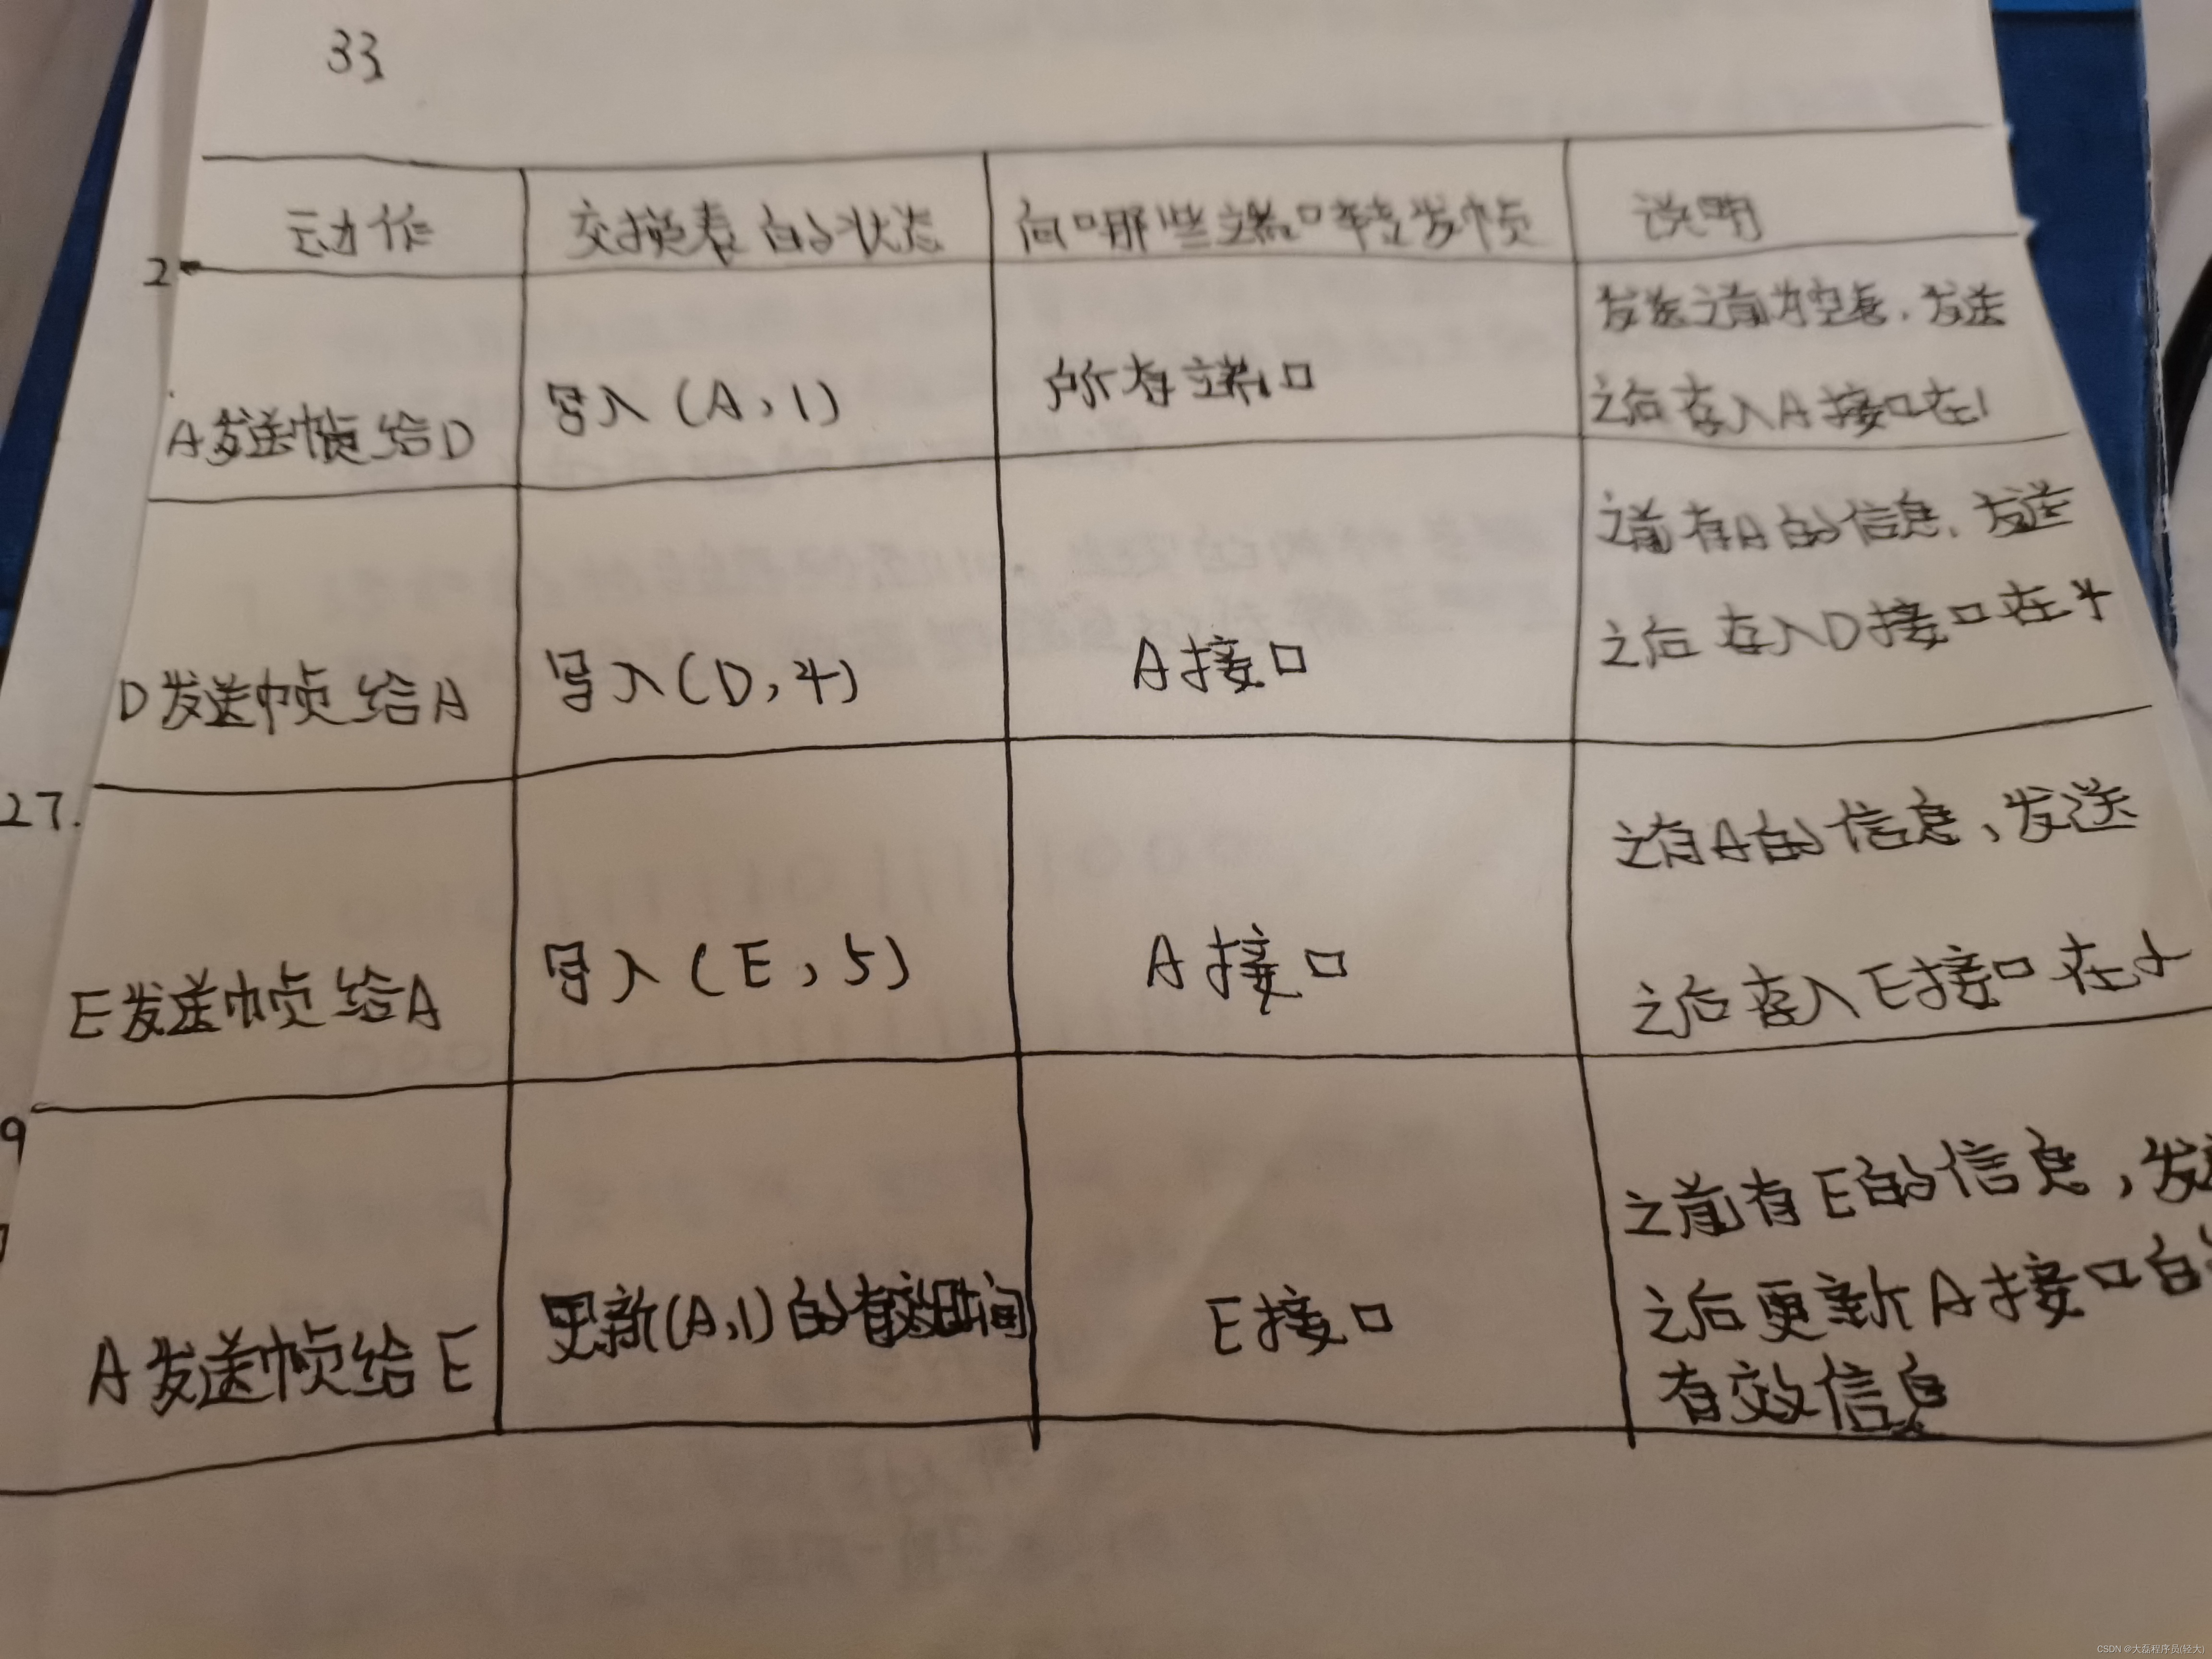 33
动作 交换表的状态 向哪些端口转发帧 说明
2
A发送帧给D 写入(A,1) 所有端口 发送之前为空表,发送
之后存入A接口在1
D发送帧给A 写入(D,4) A接口 之前有A的信息,发送
之后存入D接口在4
27.
E发送帧给A 写入(E,5) A接口 之有A的信息,发送
之后存入E接口在
9
A发送帧给E 更新(A,1)的有效时间 E接口 之前有E的信息,发
之后更新A接口的
有效信息
CSDN @大磊程序员(轻大)